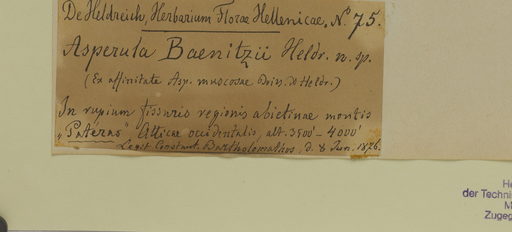 De Heldreich, Herbarium Florae Hellenicae, No. 75.
Asperula Baenitzii Heldr. n. sp.
(Ex affinitate Asp. muscosae Boiss. & Heldr.)
In rupium fissuris regionis abietinae montis
„Pateras" Atticae occidentalis, alt. 3500'-4000'
Legit Constant. Bartholomathos, d. 8 Jun. 1876.
der Techni
Zugeg